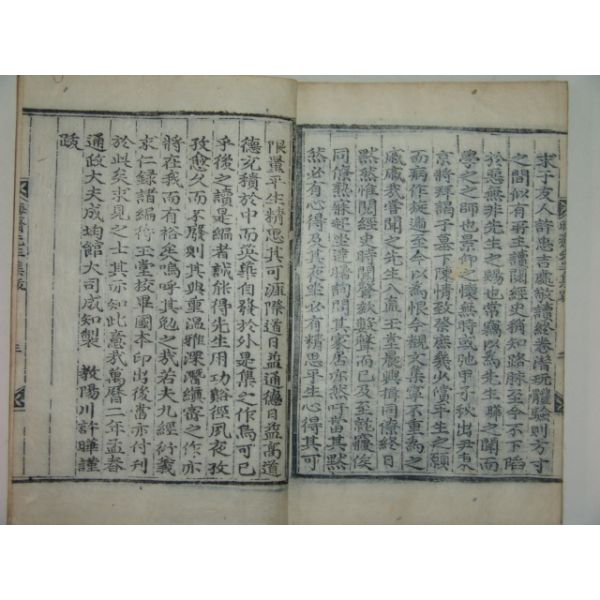 求于友人許忠吉處敬讀終卷潛玩體驗則方寸
之間似有所主讀閱經史稍知路脉至今不下陷
於惡無非先生之賜也常竊以爲先生聯之聞而
學之之師也景仰之懷無時或弛甲子秋出尹
京將拜謁于墓下陳情致祭庶幾少償平生之願
而病作挺還至今以爲恨今觀文集寧不重爲之
慼慼我嘗聞之先生入直玉堂晨興揖同僚終日
默然惟閱經史時聞聲欬數聲而已及至就寢俟
同僚熟寐起坐達曙詢問其家居亦然吁當其默
然必有心得及其夜坐必有精思平生心得其可
限量平生精思其可涯際道日益通德日益高道
德充積於中而英華自發於外是集之作烏可已
乎後之讀是編者誠能得先生用功路徑夙夜孜
孜愈久而不廢則其典重溫雅深潛縝密之作亦
將在我而有裕矣嗚呼其勉之哉若夫九經衍義
求仁錄諸編待玉堂校畢圖本印出後當亦付刊
於此矣求見之士其亦知此意哉萬曆二年孟春
通政大夫成均館大司成知製 教陽川許曄謹
跋